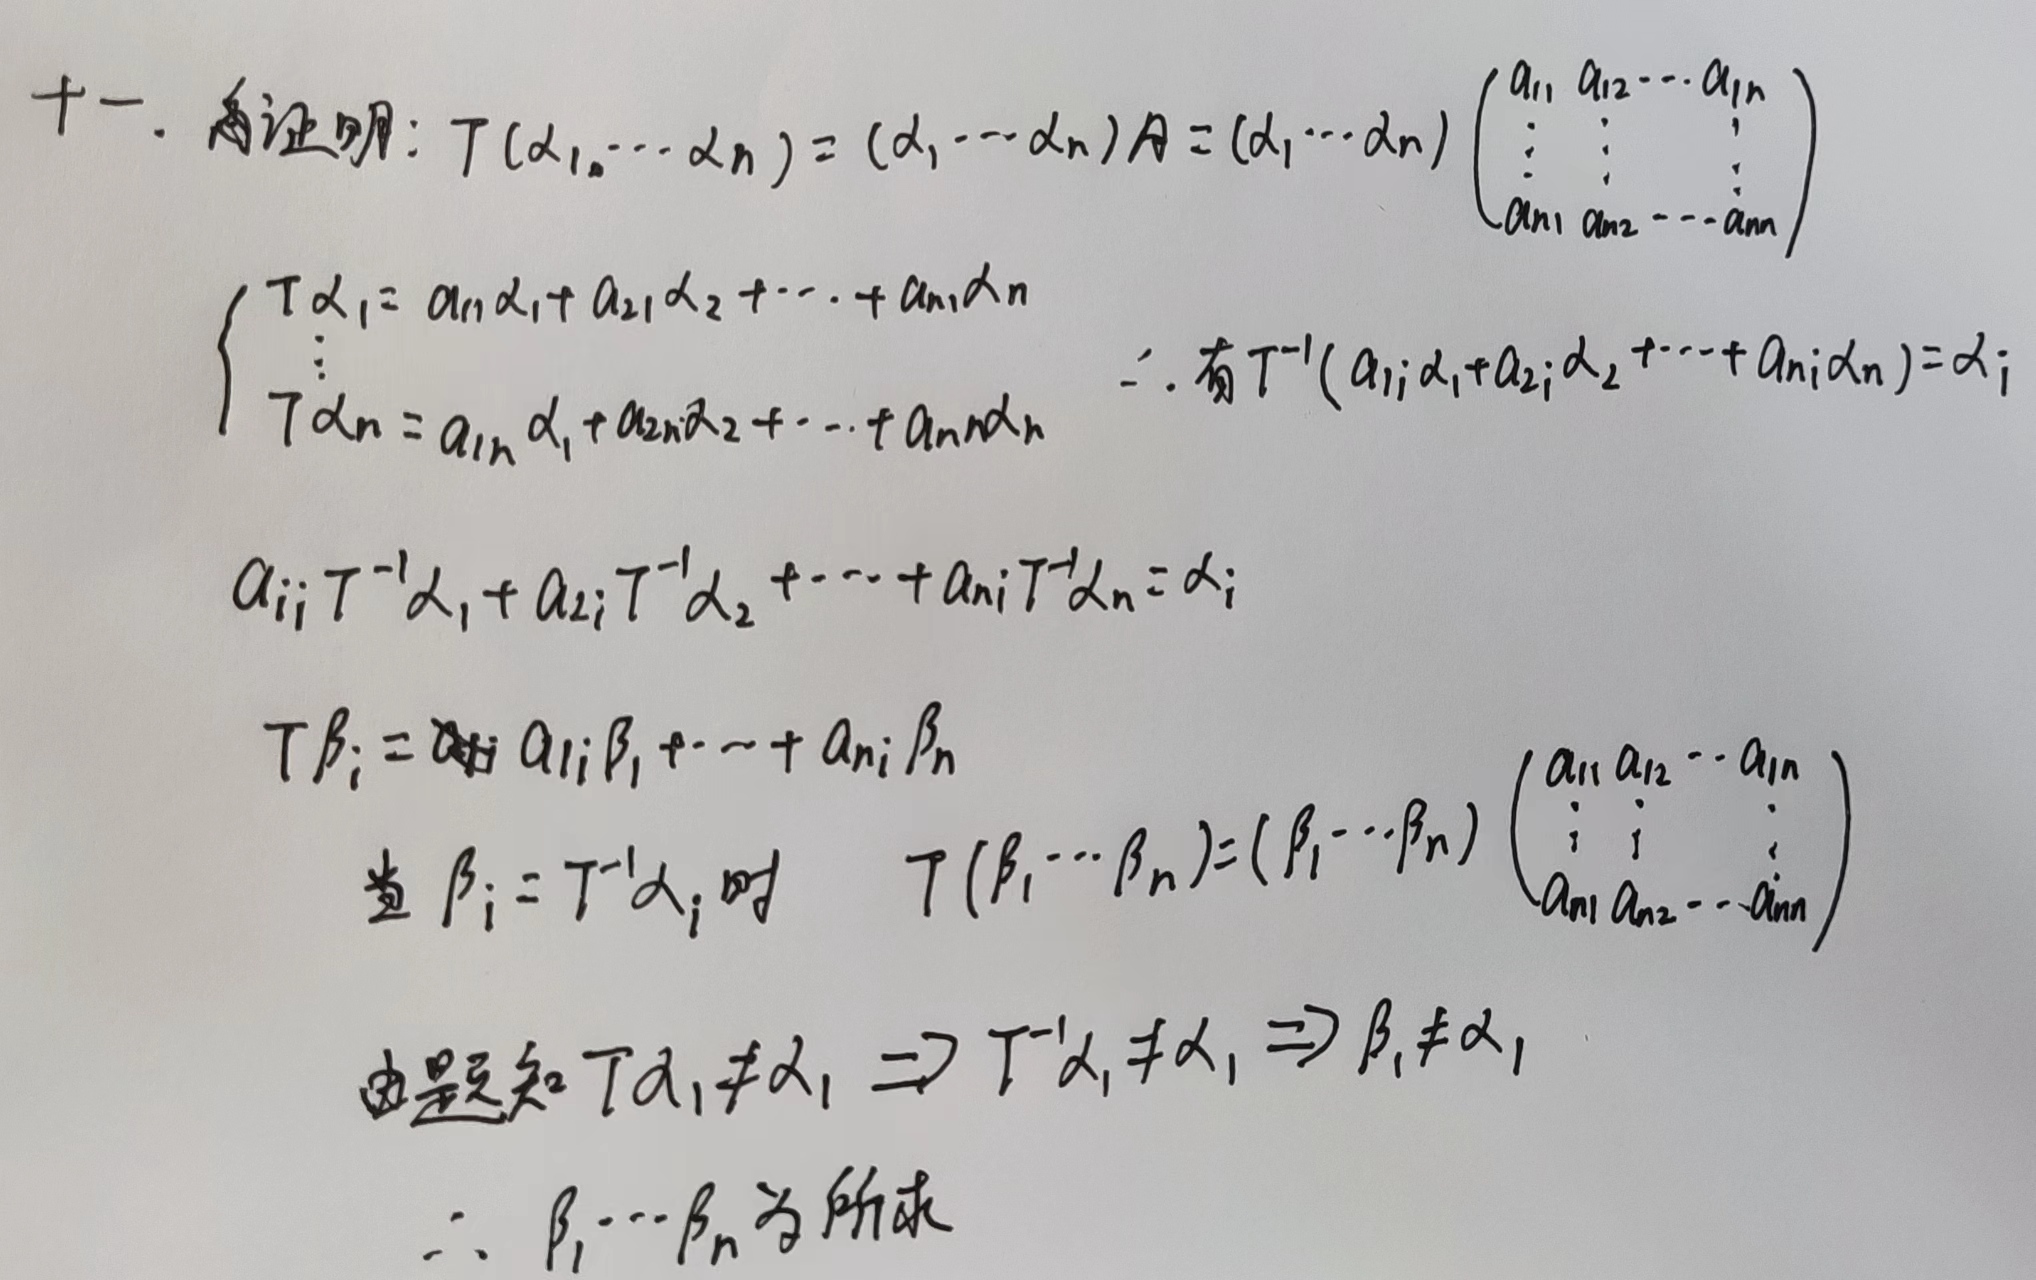 十一. 证明: T(α₁, ⋯ αₙ) = (α₁ ⋯ αₙ)A = (α₁ ⋯ αₙ) ( a₁₁ a₁₂ ⋯ a₁ₙ ⋮ ⋮ ⋮ aₙ₁ aₙ₂ ⋯ aₙₙ )
{ Tα₁ = a₁₁α₁ + a₂₁α₂ + ⋯ + aₙ₁αₙ
⋮
Tαₙ = a₁ₙα₁ + a₂ₙα₂ + ⋯ + aₙₙαₙ
∴ 有 T⁻¹(a₁ᵢα₁ + a₂ᵢα₂ + ⋯ + aₙᵢαₙ) = αᵢ
aᵢᵢT⁻¹α₁ + a₂ᵢT⁻¹α₂ + ⋯ + aₙᵢT⁻¹αₙ = αᵢ
Tβᵢ = a₁ᵢβ₁ + ⋯ + aₙᵢβₙ
当 βᵢ = T⁻¹αᵢ 时 T(β₁ ⋯ βₙ) = (β₁ ⋯ βₙ) ( a₁₁ a₁₂ ⋯ a₁ₙ ⋮ ⋮ ⋮ aₙ₁ aₙ₂ ⋯ aₙₙ )
由题知 Tα₁ ≠ α₁ ⇒ T⁻¹α₁ ≠ α₁ ⇒ β₁ ≠ α₁
∴ β₁ ⋯ βₙ 为所求